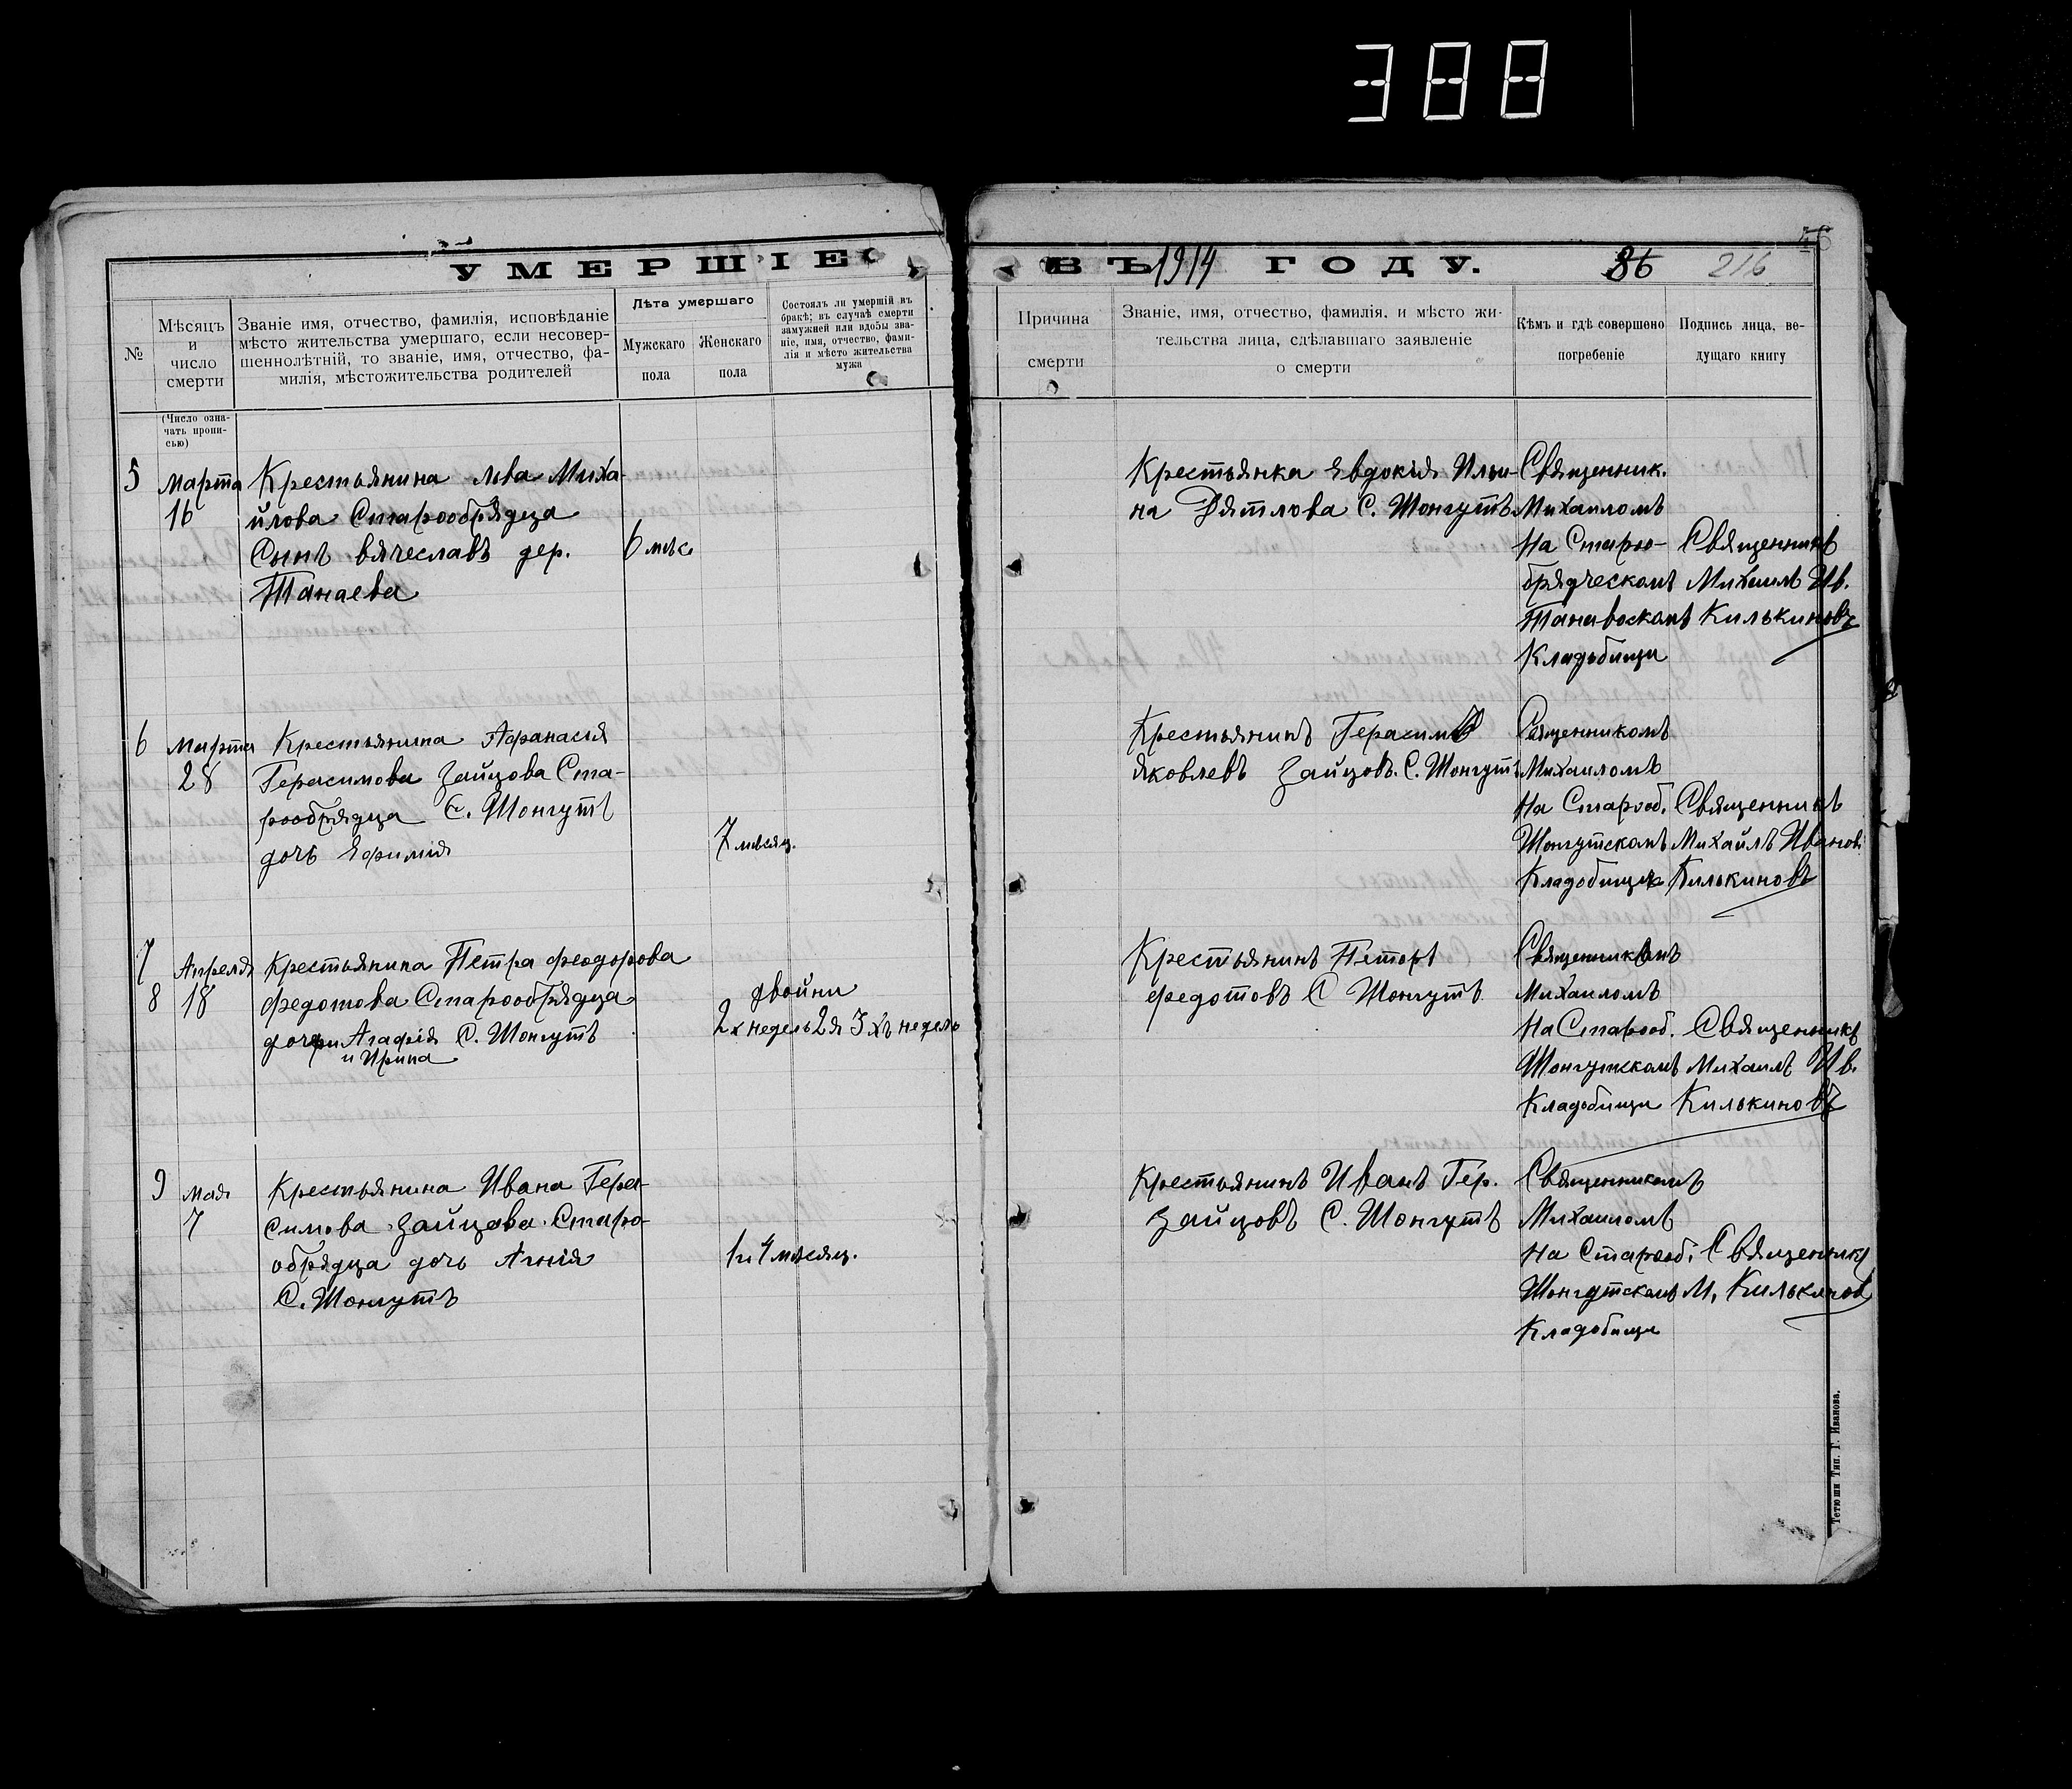 388
УМЕРШІЕ ВЪ 1914 ГОДУ. 86 216
№
Мѣсяцъ
и
число
смерти
Званіе имя, отчество, фамилія, исповѣданіе
мѣсто жительства умершаго, если несовер-
шеннолѣтній, то званіе, имя, отчество, фа-
милія, мѣстожительства родителей
Лѣта умершаго
Мужскаго
пола
Женскаго
пола
Состоялъ ли умершій въ
бракѣ; въ случаѣ смерти
замужней или вдовы зва-
ніе, имя, отчество, фами-
лія и мѣсто жительства
мужа
Причина
смерти
Званіе, имя, отчество, фамилія, и мѣсто жи-
тельства лица, сдѣлавшаго заявленіе
о смерти
Кѣмъ и гдѣ совершено
погребеніе
Подпись лица, ве-
дущаго книгу
(Число озна-
чать пропи-
сью)
5
марта
16
Крестьянина Льва Миха-
йлова Старообрядца
Сынъ Вячеславъ дер.
Танаева
6 мѣс.
Крестьянка Евдокія Ильи-
на Дятлова С. Шонгутъ
Священник.
Михаиломъ
На Старо-
брядческомъ
Танаевскомъ
Кладбищи
Священникъ
Михаилъ Ив.
Килькиновъ
6
марта
28
Крестьянина Афанасія
Герасимова Зайцова Ста-
рообрядца С. Шонгутъ
дочь Ефимія
7 мѣсяц.
Крестьянинъ Герасимъ
Яковлевъ Зайцовъ. С. Шонгутъ
Священникомъ
Михаиломъ
На Старооб.
Шонгутскомъ
Кладбищи
Священникъ
Михайлъ Иванов.
Килькиновъ
7
8
Апреля
18
Крестьянина Петра Феодорова
Федотова Старообрядца
дочери Агафія С. Шонгутъ
и Ирина
двойни
2х недель 2я 3хъ недель
Крестьянинъ Петоръ
Федотовъ С Шонгутъ
Священникомъ
Михаиломъ
На Старооб.
Шонгутскомъ
Кладбищи
Священникъ
Михаилъ Ив.
Килькиновъ
9
мая
7
Крестьянина Ивана Гера-
симова Зайцова Старо-
обрядца дочь Агнія
С. Шонгутъ
1 и 4 мѣсяц.
Крестьянинъ Иванъ Гер.
Зайцовъ С. Шонгутъ
Священникомъ
Михаиломъ
На Старооб.
Шонгутскомъ
Кладбищи
Священникъ
М. Килькинов
Тетюши Тип. Г. Иванова.